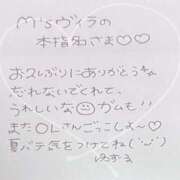 M'sヴィラの
本指名さま♡♡
お久しぶりにありがとうね
忘れないでくれて、
うれしいな☺ガムも!!
また○Lさんごっこしよ〜♡
夏バテ気をつけてね('ω')